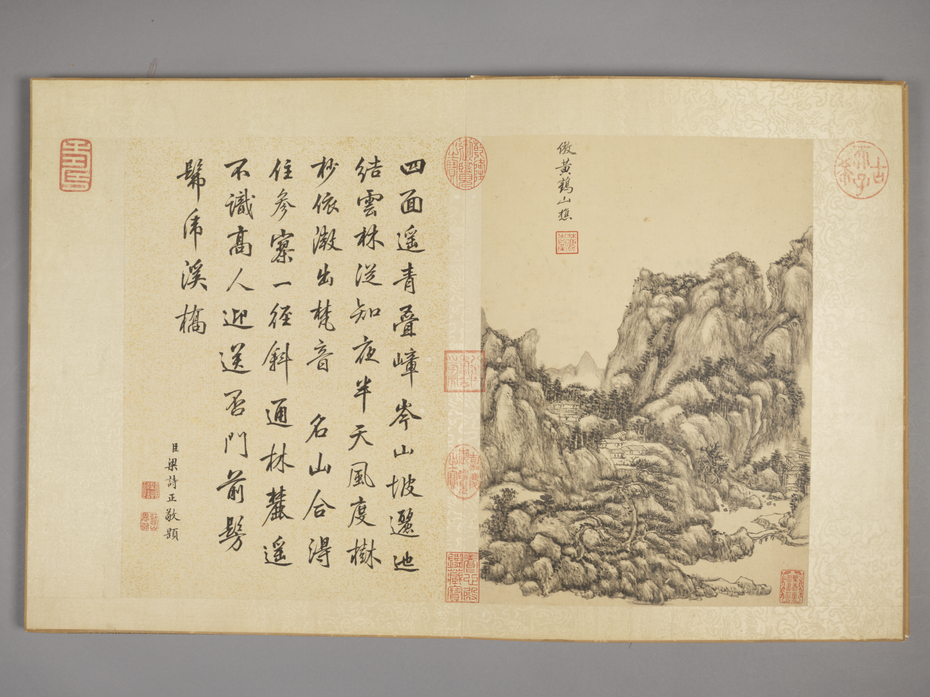 倣黃鶴山樵
四面遥青叠嶂岑山坡邐迆
結雲林從知夜半天風度樹
杪依微出梵音 名山合得
住參寥一徑斜通林麓遥
不識高人迎送否門前髣
髴虎溪橋
臣梁詩正敬題
古希天子